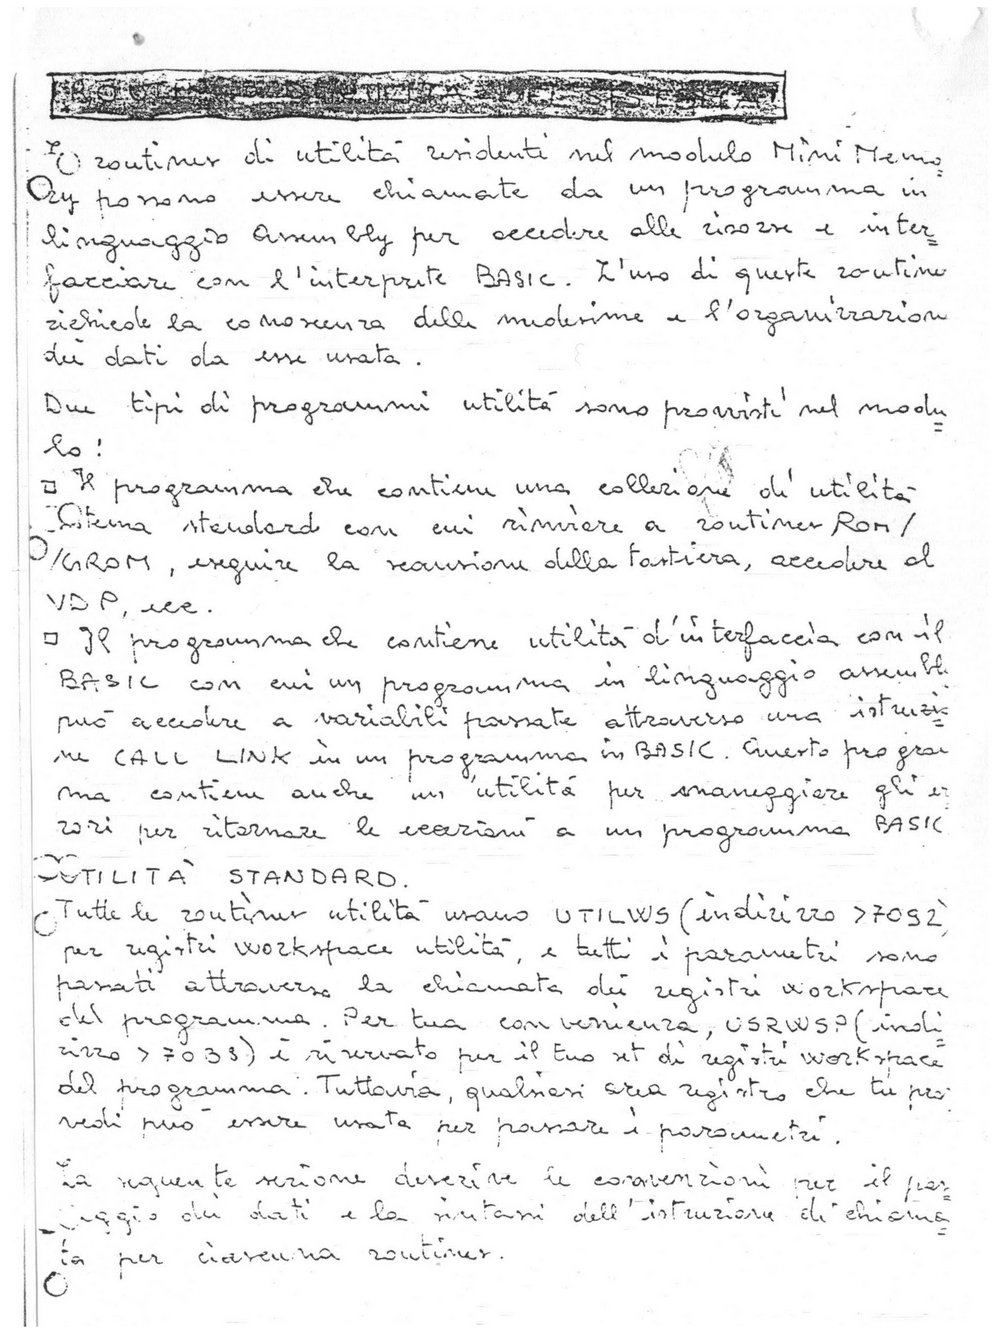 ROUTINES DI UTILITÀ DEL SISTEMA
routines di utilità residenti nel modulo Mini Memo=
ry possono essere chiamate da un programma in
linguaggio Assembly per accedere alle risorse e inter=
facciare con l'interprete BASIC. L'uso di queste routine
richiede la conoscenza delle medesime e l'organizzazion
dei dati da esse usata.
Due tipi di programmi utilità sono provvisti nel modu
=
lo:
□ Il programma che contiene una collezione di utilità
sistema standard con cui rinviare a routines ROM/
/GROM, eseguire la scansione della tastiera, accedere al
VDP, ecc.
□ Il programma che contiene utilità d'interfaccia con il
BASIC con cui un programma in linguaggio assembl
può accedere a variabili passate attraverso una istruzi
ne CALL LINK in un programma in BASIC. Questo progra
ma contiene anche un'utilità per maneggiare gli er
rori per ritornare le eccezioni a un programma BASIC
UTILITÀ STANDARD.
Tutte le routines utilità usano UTILWS (indirizzo >7092)
per registri workspace utilità, e tutti i parametri sono
passati attraverso la chiamata dei registri workspace
del programma. Per tua convenienza, USRWSP (indi
rizzo >70B8) è riservato per il tuo set di registri workspace
del programma. Tuttavia, qualsiasi area registro che tu prov
vedi può essere usata per passare i parametri.
La seguente sezione descrive le convenzioni per il pas=
saggio dei dati e la sintassi dell'istruzione di chiama=
ta per ciascuna routines.